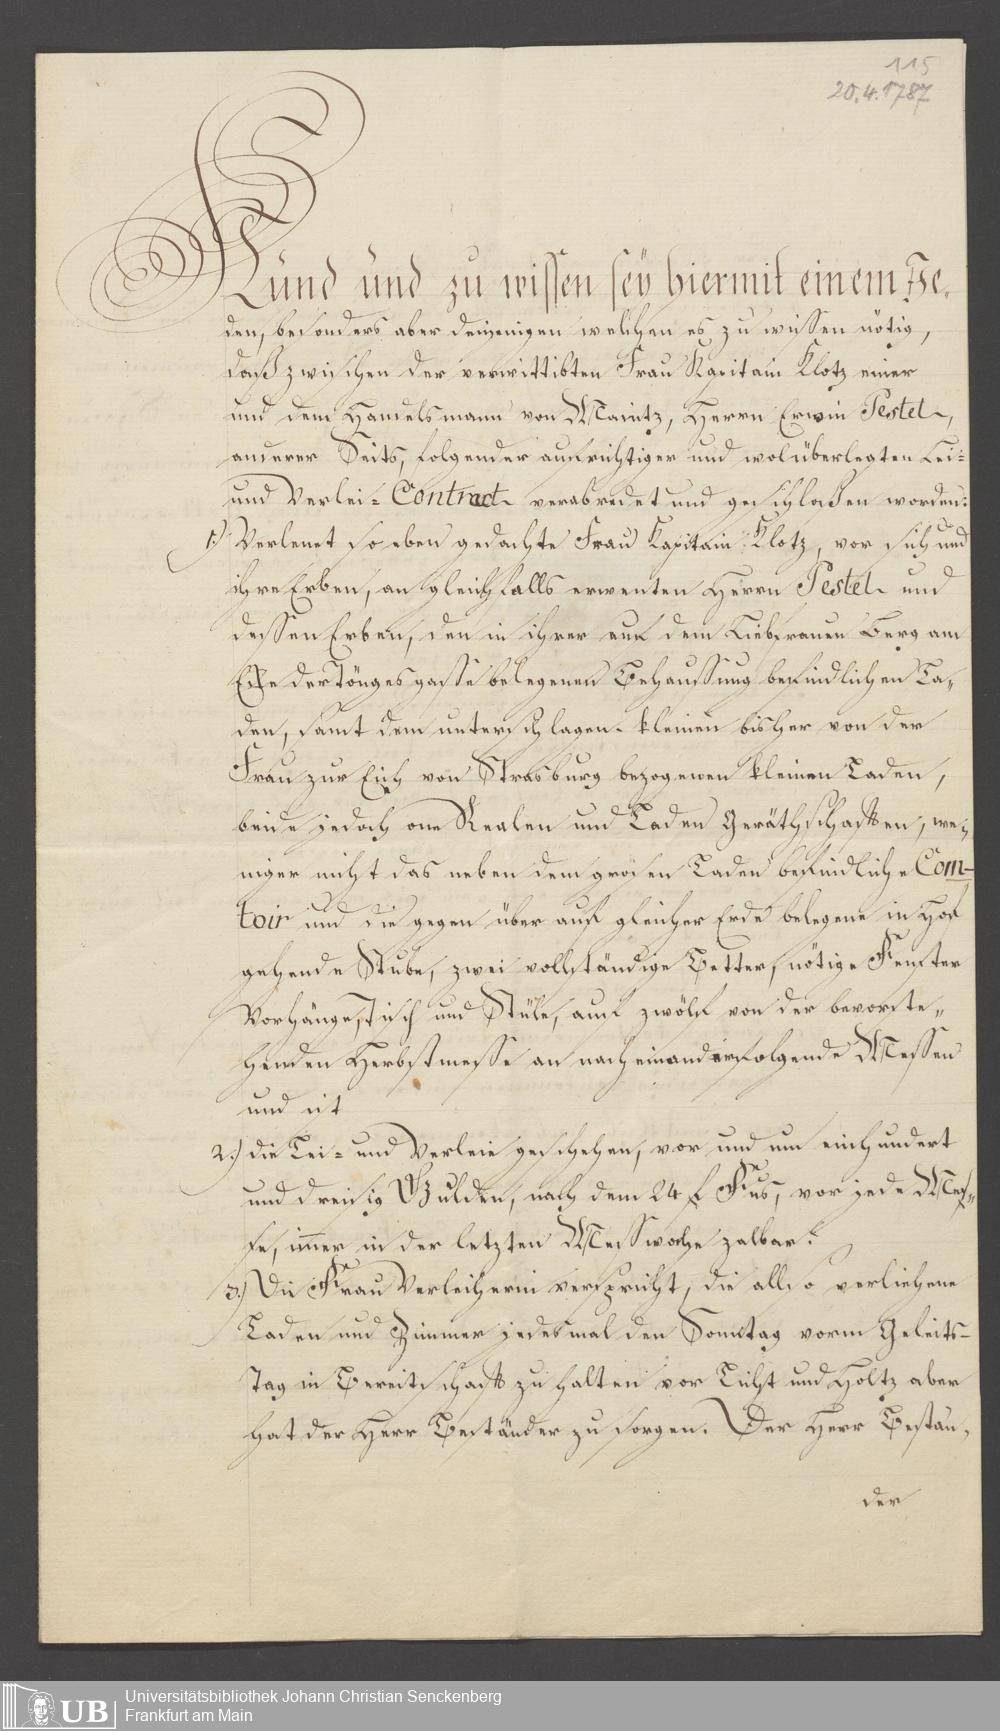 115
20.4.1787
Kund und zu wissen sey hiermit einem Je-
den, besonders aber denjenigen welchen es zu wissen nötig,
daß zwischen der verwittibten Frau Kapitain Klotz einer
und dem Handelsmann von Maintz, Herrn Erwin Pestel,
anderer Seits, folgender aufrichtiger und wolüberlegten Lei=
und Verlei= Contract verabredet und geschloßen worden:
1.) Verlenet so eben gedachte Frau Kapitain Klotz, vor sich und
ihre Erben, an gleichfalls erwenten Herrn Pestel und
dessen Erben, den in ihrer auf dem Liebfrauen Berg am
Eke der Töngesgasse belegenen Behaussung befindlichen La-
den, samt dem unterschlagen kleinen bisher von der
Frau zur Eich von Strasburg bezogenen kleinen Laden,
beide jedoch one Realen und Laden Geräthschafften, we-
niger nicht das neben dem grosen Laden befindliche Com-
toir und die gegen über auf gleicher Erde belegene in Hof
gehende Stube, zwei vollständige Better, nötige Fenster
Vorhänge, Tisch und Stüle, auf zwölf von der bevorste-
henden Herbstmesse an nacheinanderfolgende Messen
und ist
2.) die Lei= und Verleie geschehen, vor und um einhundert
und dreisig Gulden, nach dem 24 f Fus, vor jede Mes-
se, immer in der letzten Messwoche zalbar.
3.) Die Frau Verleiherin verspricht, die allso verliehene
Laden und Zimmer jedesmal den Sonntag vorm Geleits-
Tag in Bereitschafft zu halten vor Licht und Holtz aber
hat der Herr Beständer zu sorgen. Der Herr Bestän-
der
UB Universitätsbibliothek Johann Christian Senckenberg
Frankfurt am Main